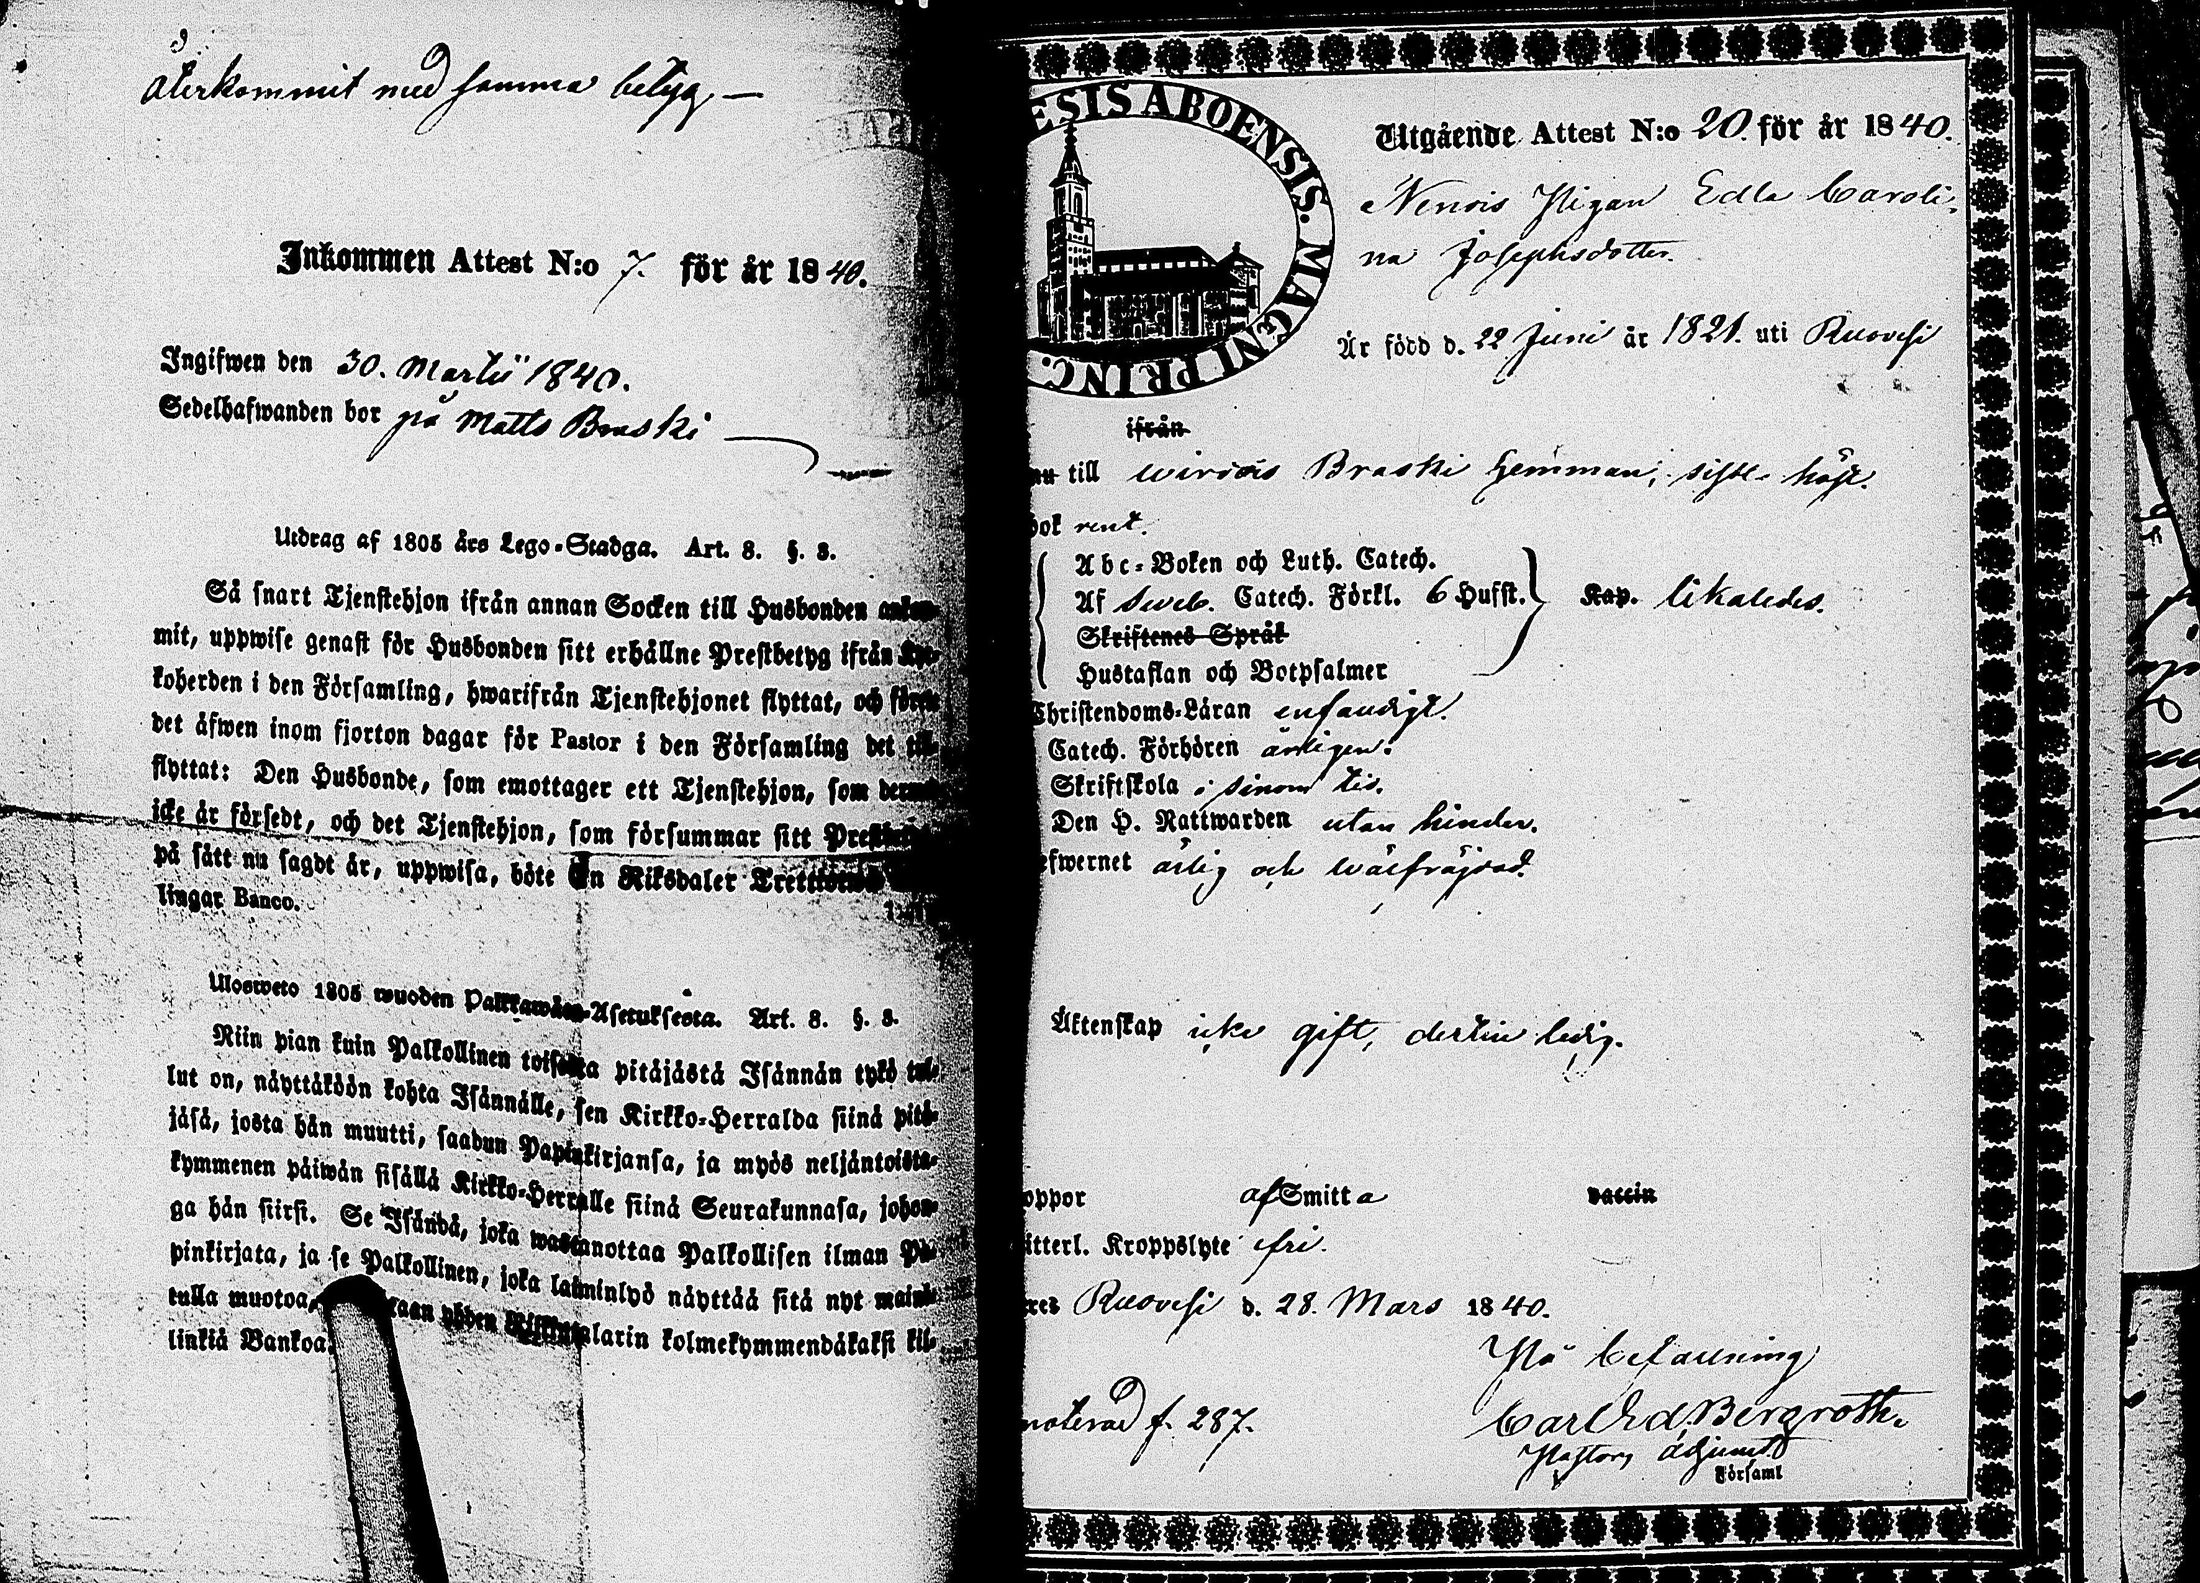 återkommit med samma betyg —
Inkommen Attest N:o 7. för år 1840.
Ingifwen den 30. Martii 1840.
Sedelhafwanden bor på Matts Braski
Utdrag af 1805 års Lego-Stadga. Art. 8. §. 3.
Så snart Tjenstehjon ifrån annan Socken till Husbonden
mit, uppwise genast för Husbonden sitt erhållne Prestbetyg ifrån
koherden i den Församling, hwarifrån Tjenstehjonet flyttat, och
det äfwen inom fjorton dagar för Pastor i den Församling det
flyttat: Den Husbonde, som emottager ett Tjenstehjon, som
icke är försedt, och det Tjenstehjon, som försummar sitt
på sätt nu sagdt är, uppwisa, böte En Riksdaler
lingar Banco.
Ulosweto 1805 wuoden Palkkawäen-Asetuksesta. Art. 8. §. 3.
Niin pian kuin Palkollinen toisesta pitäjästä Isännän tykö tul-
lut on, näyttäköön kohta Isännälle, sen Kirkko-Herralda siinä pitä-
jäsä, josta hän muutti, saadun Papinkirjansa, ja myös neljäntoista-
kymmenen päiwän sisällä Kirkko-Herralle siinä Seurakunnasa, johon-
ga hän siirsi. Se Isändä, joka wastanottaa Palkollisen ilman Pa-
pinkirjata, ja se Palkollinen, joka laiminlyö näyttää sitä nyt maini-
tulla muotoa, yhden Riikintalarin kolmekymmendäkaksi kil-
linkiä Bankoa.
ESIS ABOENSIS. MAGNI PRINC.
Utgående Attest N:o 20. för år 1840.
Pigan Edla Caroli-
na Josephsdotter.
Är född d. 22 Juni år 1821. uti Ruovesi
ifrån
nu till Wirdois Braski hemman, sistl. höst.
bok rent.
Abc-Boken och Luth. Catech.
Af Sweb. Catech. Förkl. 6 Hufst. Kap. likaledes.
Skriftenes Språk
Hustaflan och Botpsalmer
Christendoms-Läran enfaudigt.
Catech. Förhören årligen.
Skriftskola i sinom tid.
Den H. Nattwarden utan hinder.
efwernet ärlig och wälfräjdad.
Äktenskap icke gift, dertill ledig.
oppor af Smitta vaccin
itterl. Kroppslyte fri.
res Ruovesi d. 28. Mars 1840.
På befallning
noterad f. 287.
Carl Ed. Bergroth.
Pastors adjunct
Församl